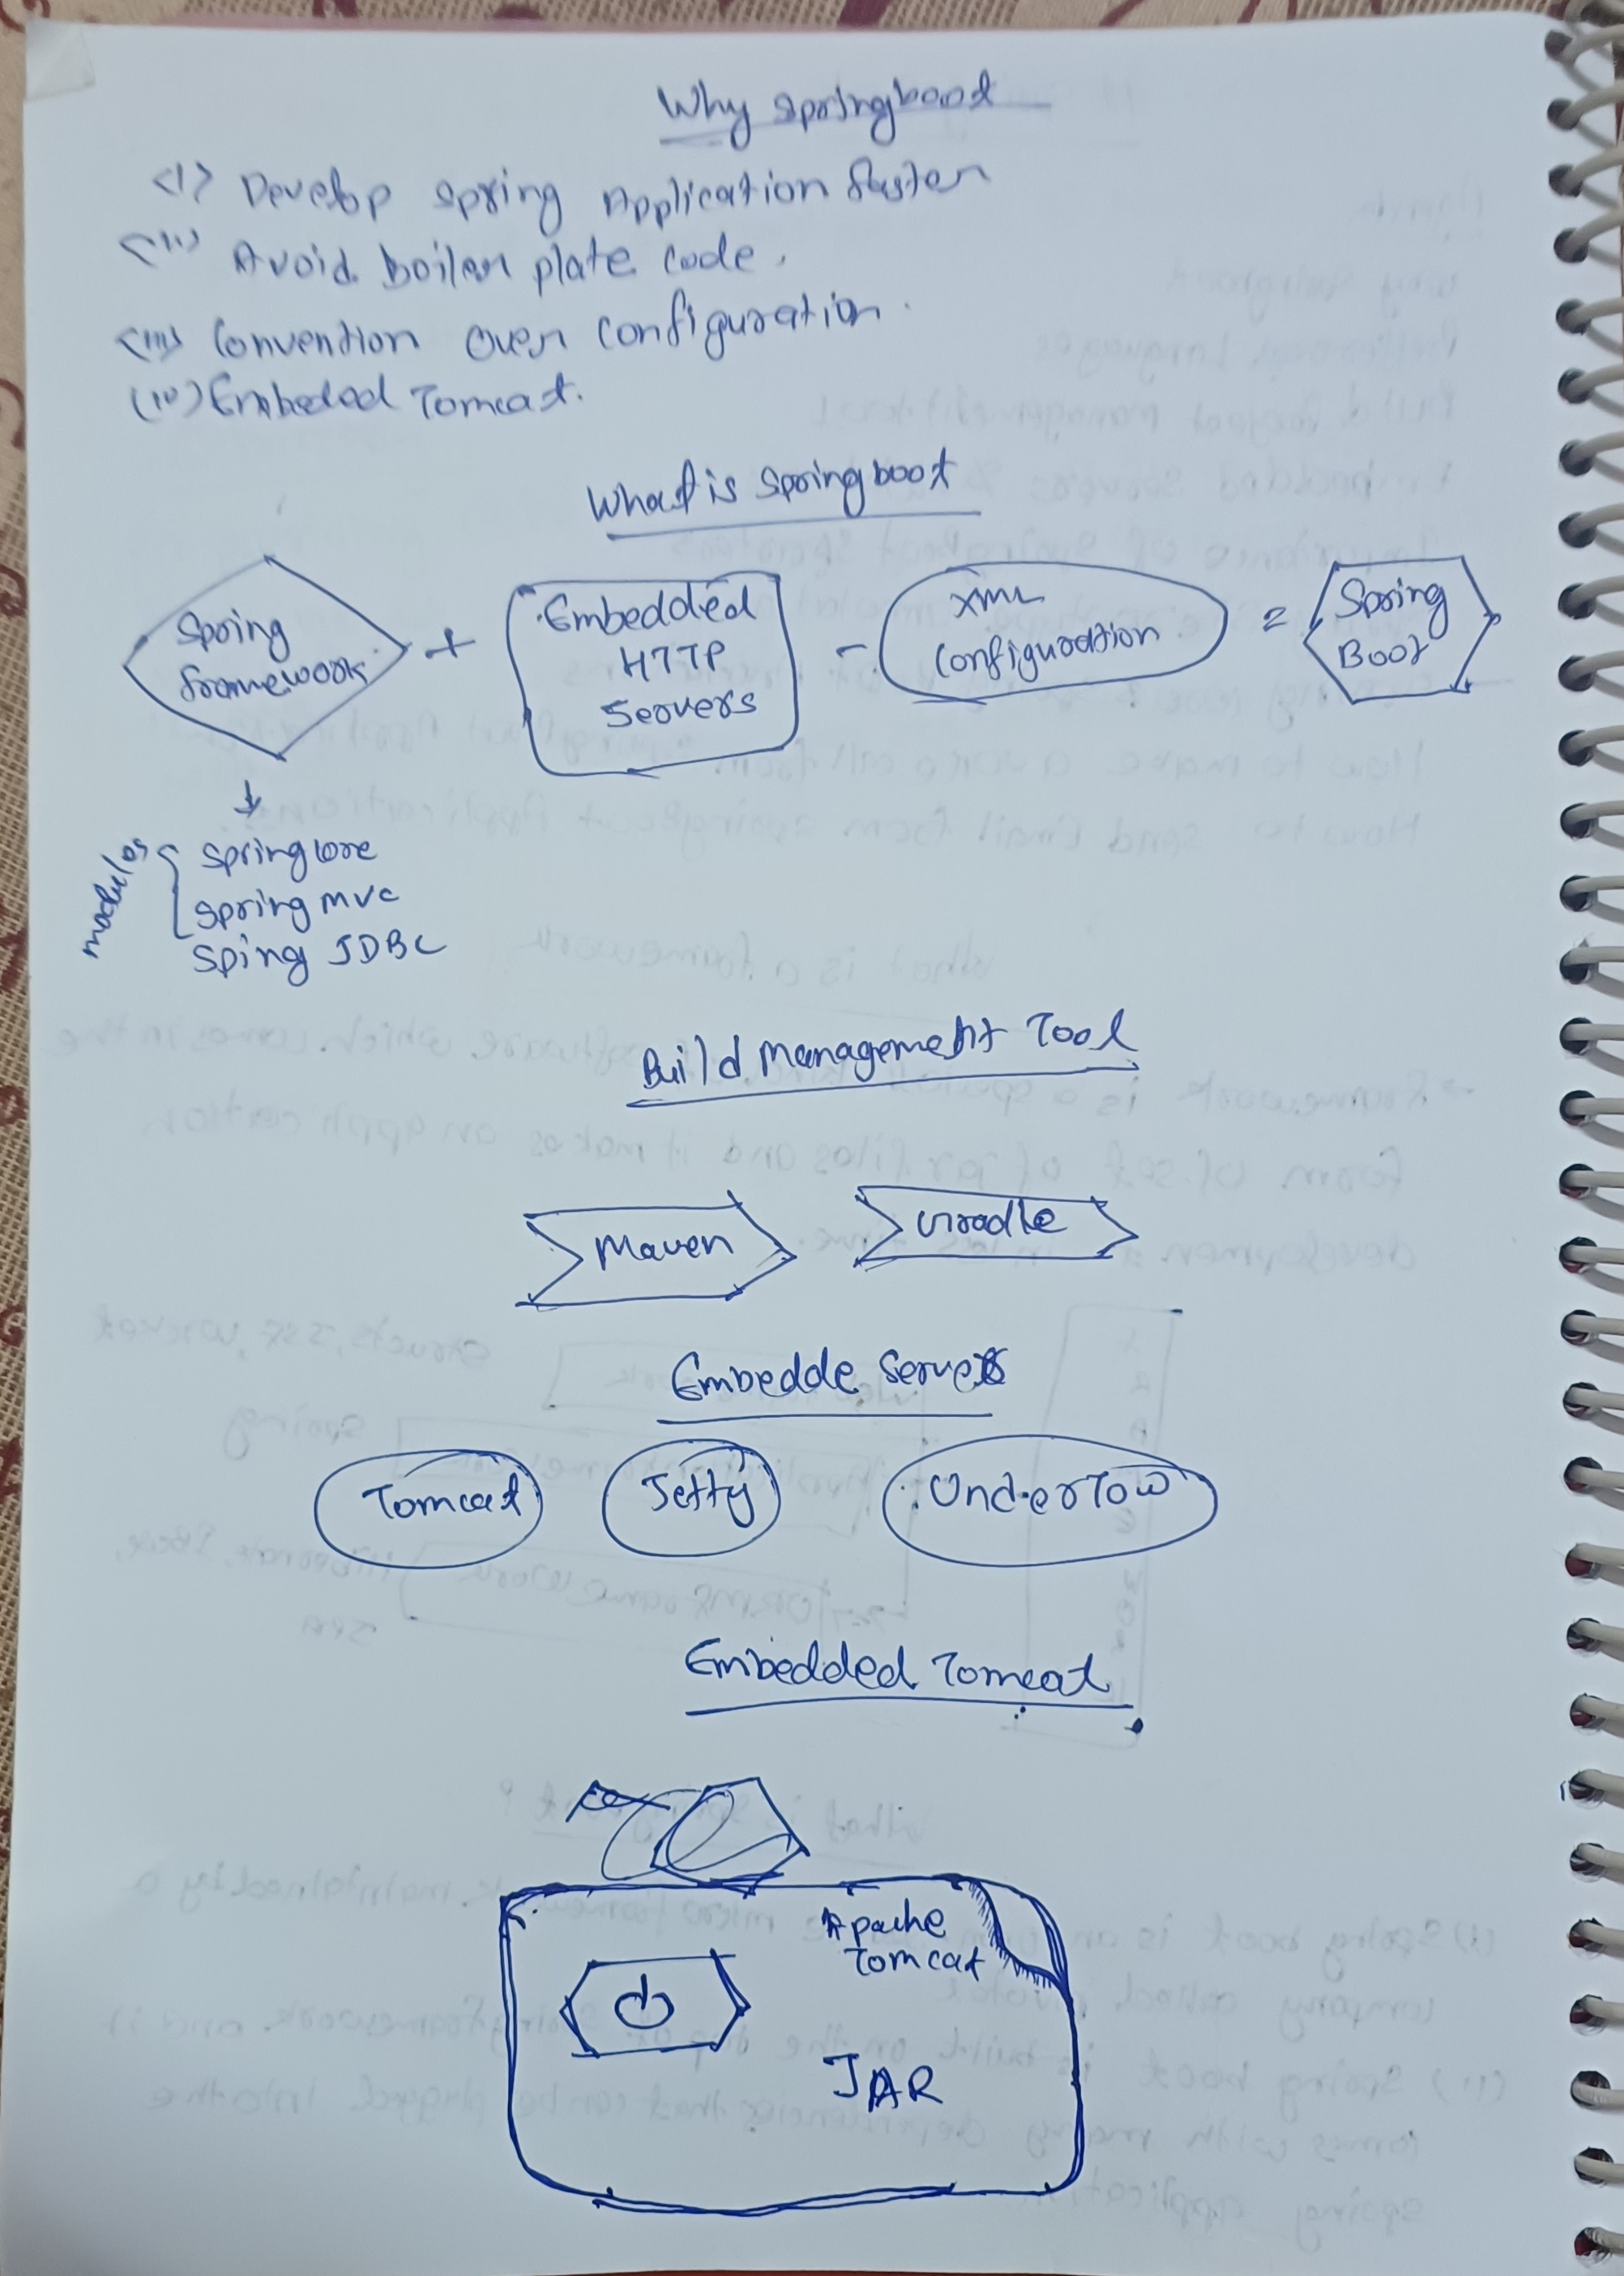 Why Springboot
<i> Develop Spring Application faster
<ii> Avoid boiler plate code.
<iii> Convention over Configuration.
(iv) Embeded Tomcat.
What is Springboot
Spring framework + Embedded HTTP Servers - XML Configuration = Spring Boot
modules
Spring Core
Spring MVC
Sping JDBC
Build Management Tool
Maven Gradle
Embedde Servers
Tomcat Jetty UnderTow
Embedded Tomcat
Apache
Tomcat
JAR